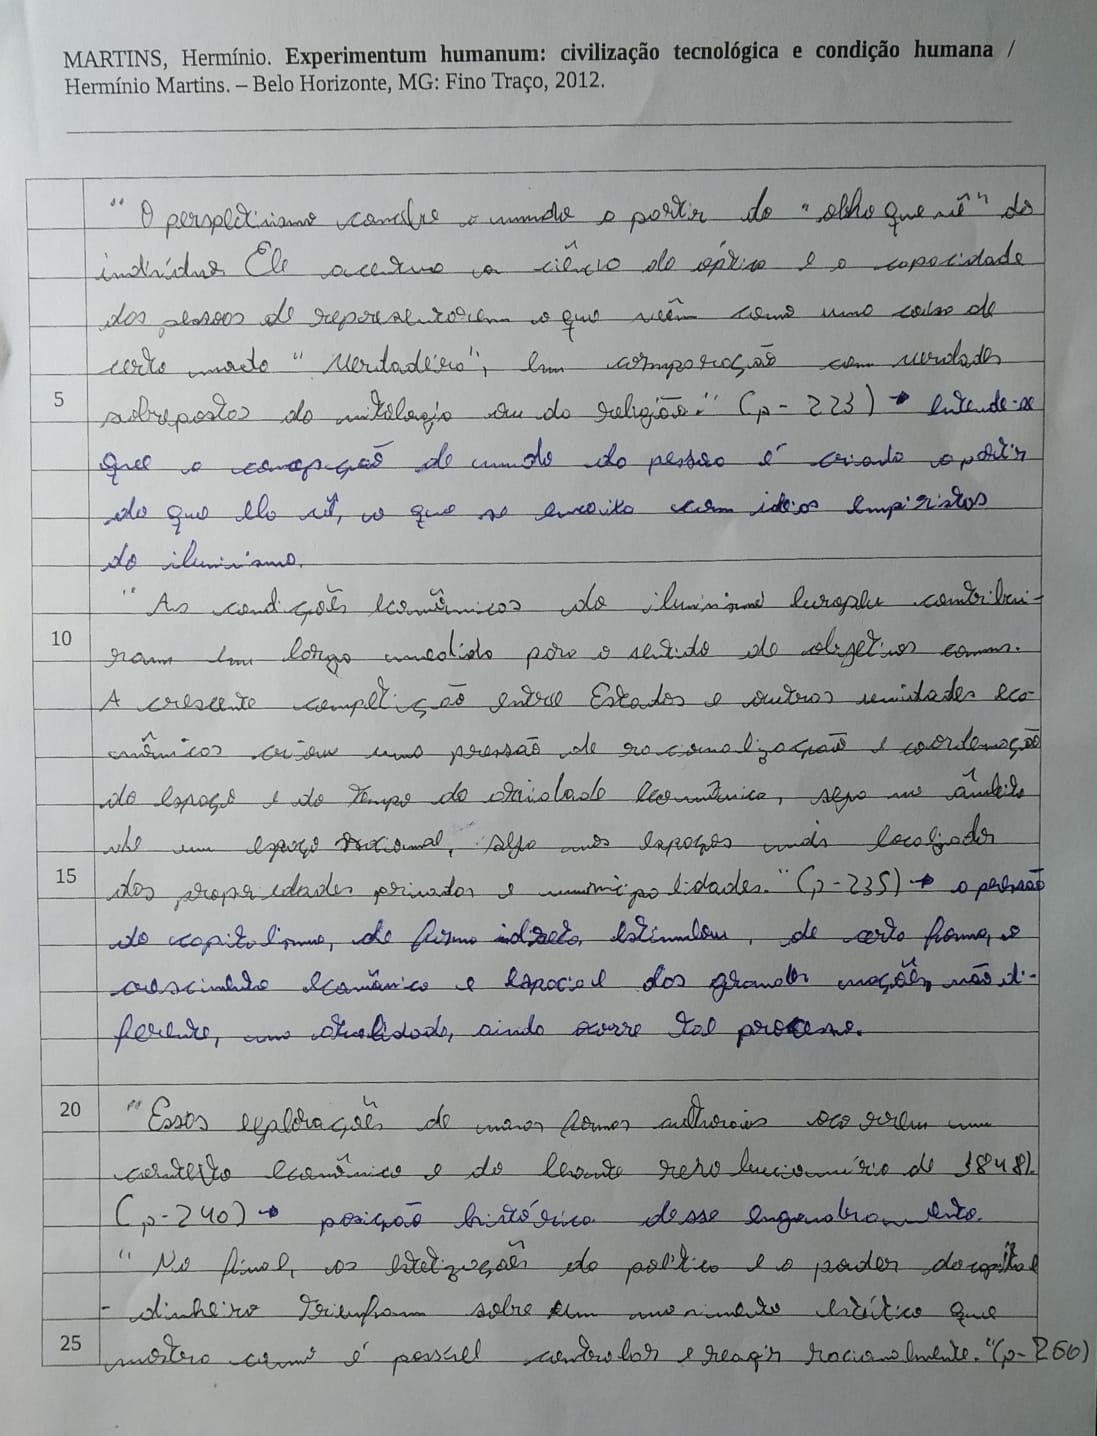 MARTINS, Hermínio. Experimentum humanum: civilização tecnológica e condição humana /
Hermínio Martins. – Belo Horizonte, MG: Fino Traço, 2012.
"O perspectivismo concebe o mundo a partir do "olho que vê" do
indivíduo. Ele acentua a ciência da óptica e a capacidade
das pessoas de representarem o que vêem como uma coisa de
certo modo "verdadeira", em comparação com verdades
5 sobrepostas da mitologia ou da religião." (p-223) → entende-se
que a concepção de mundo da pessoa é criada a partir
do que ela vê, o que se encaixa com ideias empiristas
do iluminismo.
"As condições econômicas do iluminismo europeu contribuí-
10 ram em larga medida para o sentido de objetivos comuns.
A crescente competição entre Estados e outras unidades eco-
nômicas criou uma pressão de racionalização e coordenação
do espaço e do tempo da atividade econômica, seja no âmbito
de um espaço nacional, seja nos espaços mais localizados
15 das propriedades privadas e municipalidades." (p-235) → a pressão
do capitalismo, de forma indireta, estimulou, de certa forma, o
crescimento econômico e espacial das grandes nações, não di-
ferente, na atualidade, ainda ocorre tal processo.
20 "Essas explorações de novas formas culturais ocorrem num
contexto econômico e do levante revolucionário de 1848).
(p-240) → posição histórica desse engendramento.
"No final, as estetizações da política e o poder do capital
- dinheiro triunfam sobre um movimento estético que
25 mostra como é possível controlar e reagir racionalmente." (p-260)